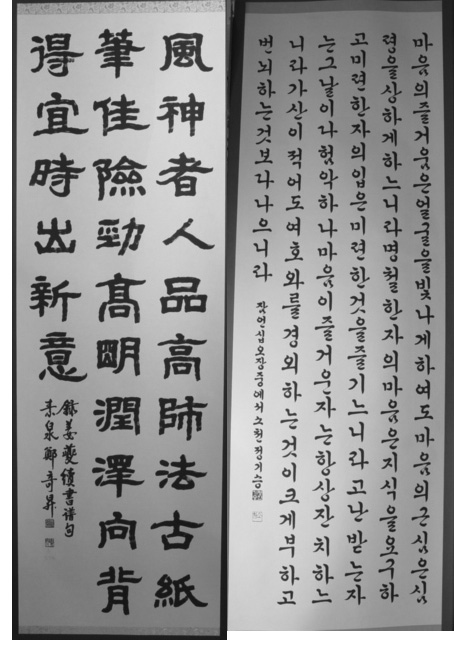 風神者人品高師法古紙
筆佳險勁高朙潤澤向背
得宜時出新意
錄姜夔續書譜句
素泉鄭奇昇
마음의즐거움은얼굴을빛나게하여도마음의근심은심
령을상하게하느니라명철한자의마음은지식을요구하
고미련한자의입은미련한것을즐기느니라고난받는자
는그날이다험악하나마음이즐거운자는항상잔치하느
니라가산이적어도여호와를경외하는것이크게부하고
번뇌하는것보다나으니라
잠언십오장중에서소천정기승